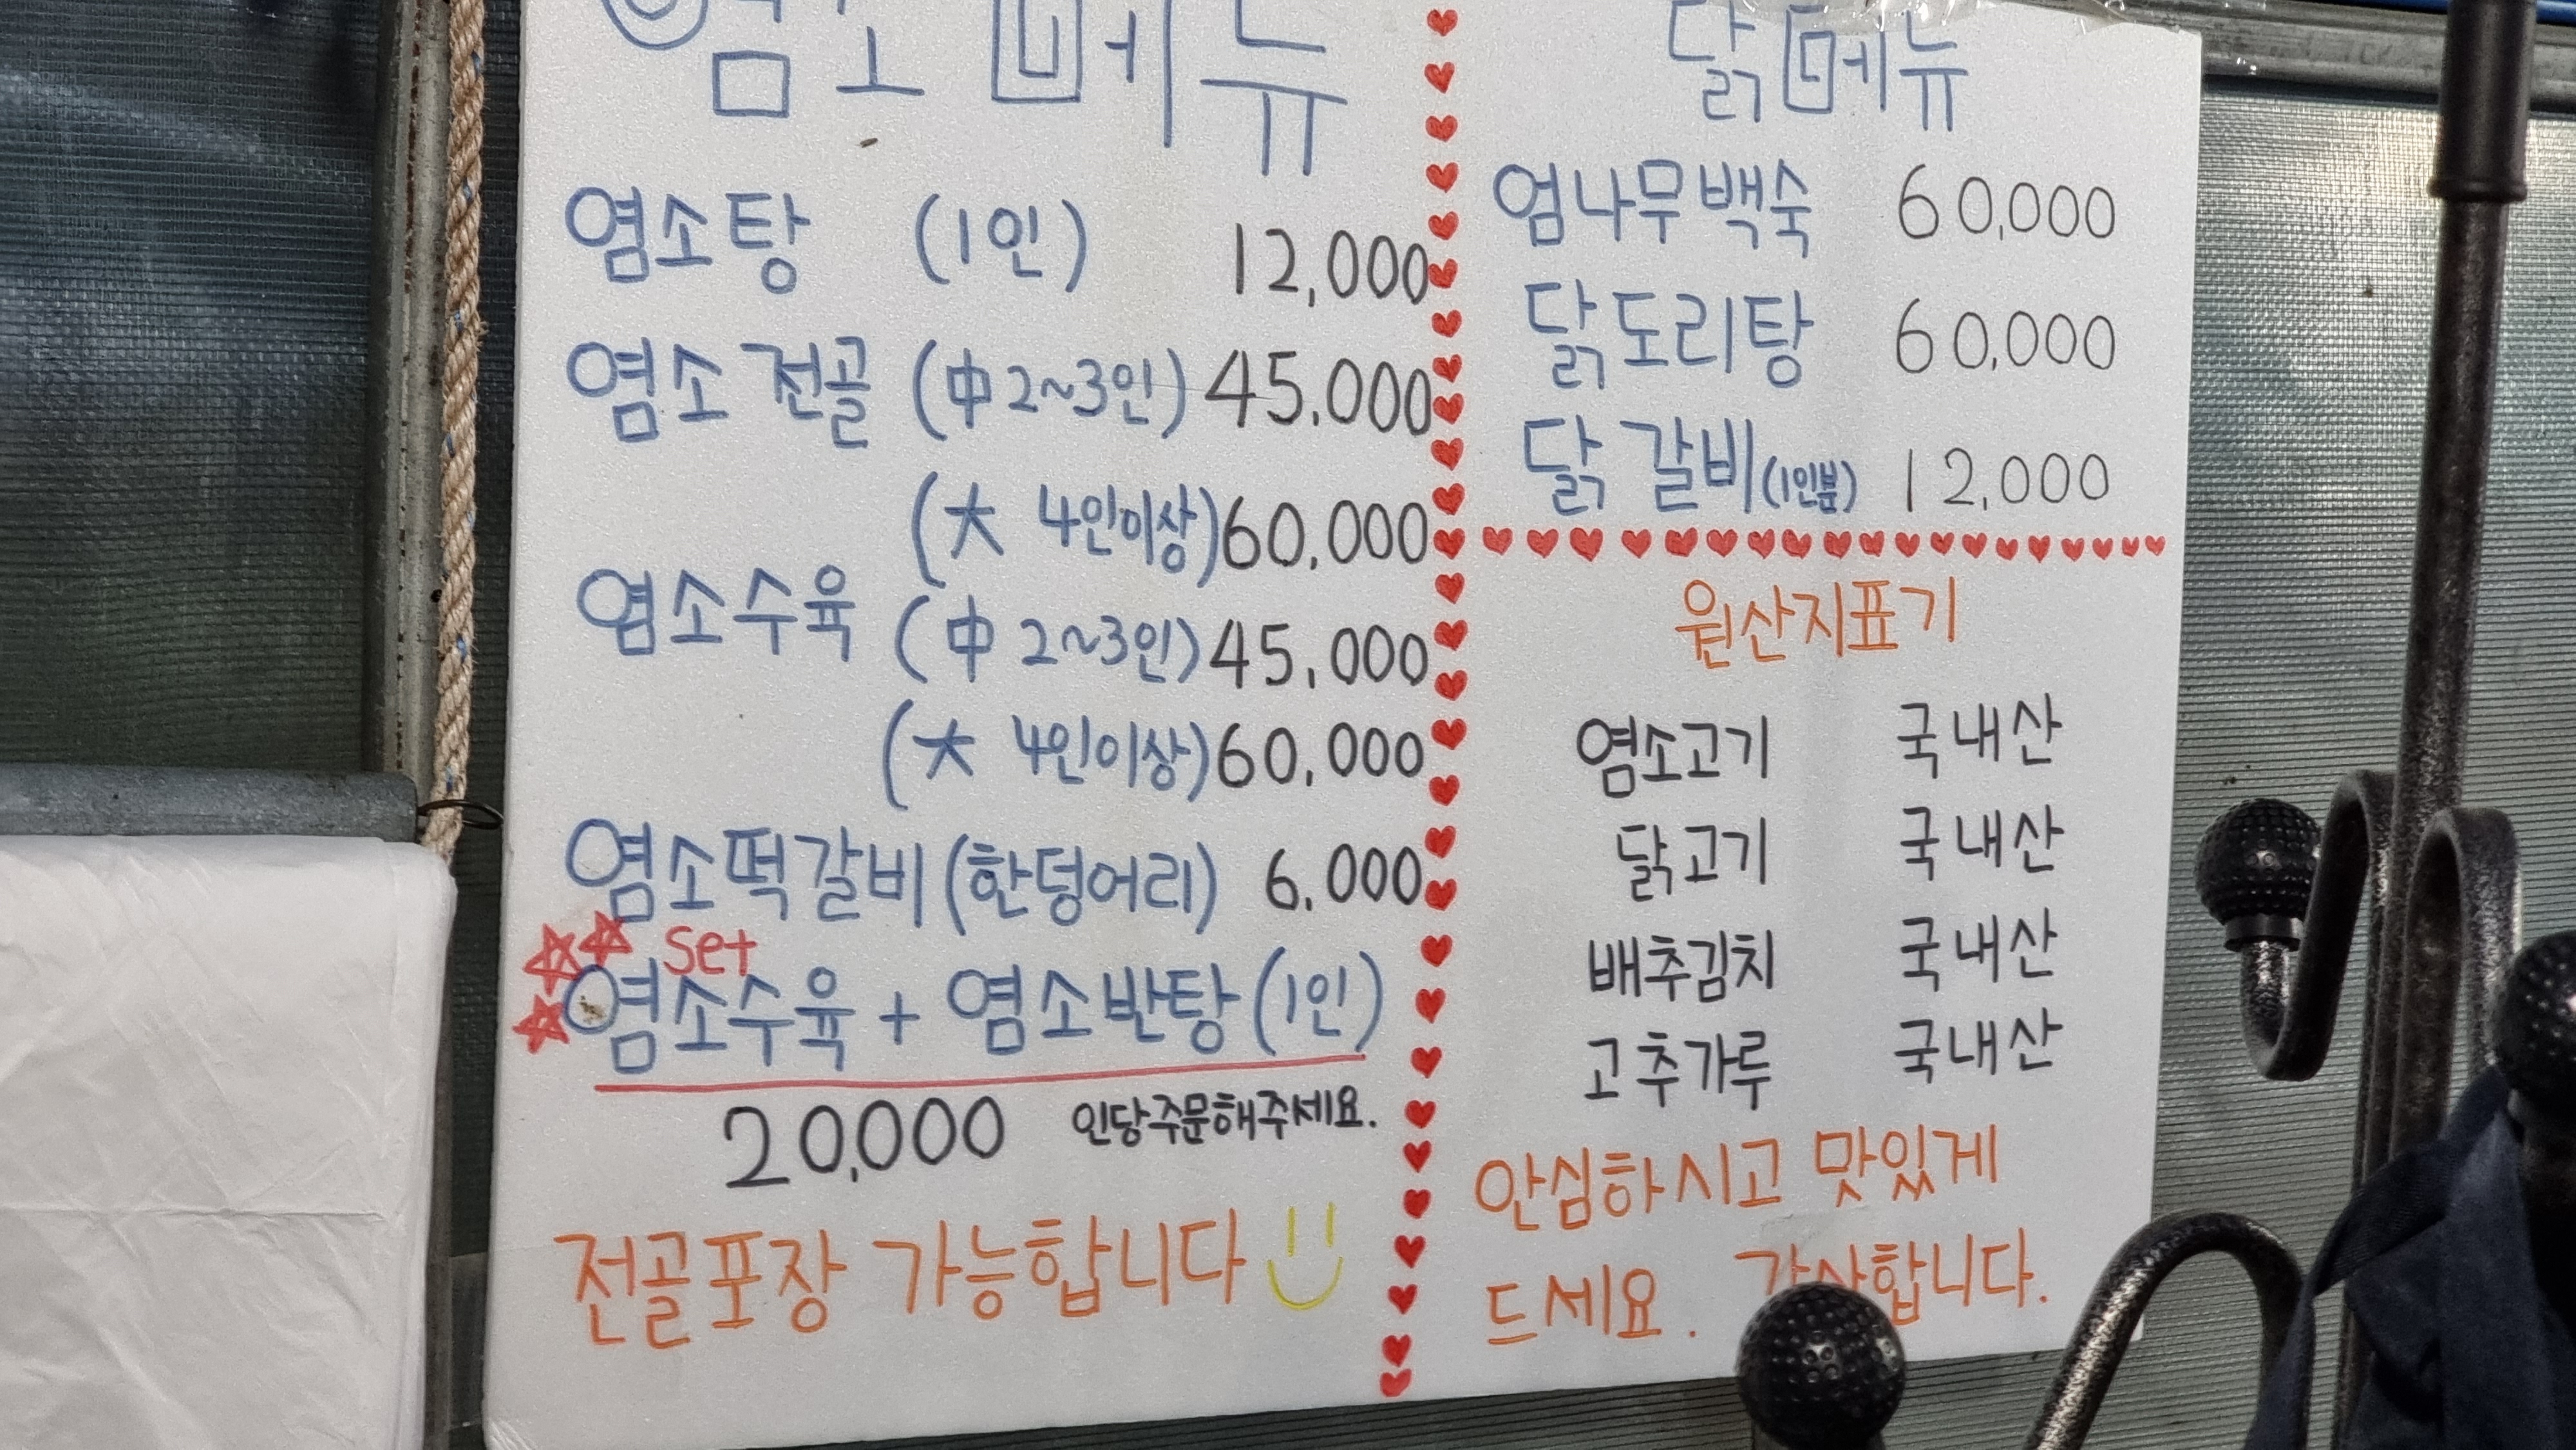 염소 메뉴
염소탕 (1인) 12,000
염소 전골 (中 2~3인) 45,000
(大 4인이상) 60,000
염소수육 (中 2~3인) 45,000
(大 4인이상) 60,000
염소떡갈비 (한덩어리) 6,000
set
염소수육 + 염소반탕 (1인)
20,000 인당주문해주세요.
전골포장 가능합니다
닭메뉴
엄나무백숙 60,000
닭도리탕 60,000
닭갈비 (1인분) 12,000
원산지표기
염소고기 국내산
닭고기 국내산
배추김치 국내산
고추가루 국내산
안심하시고 맛있게
드세요. 감사합니다.